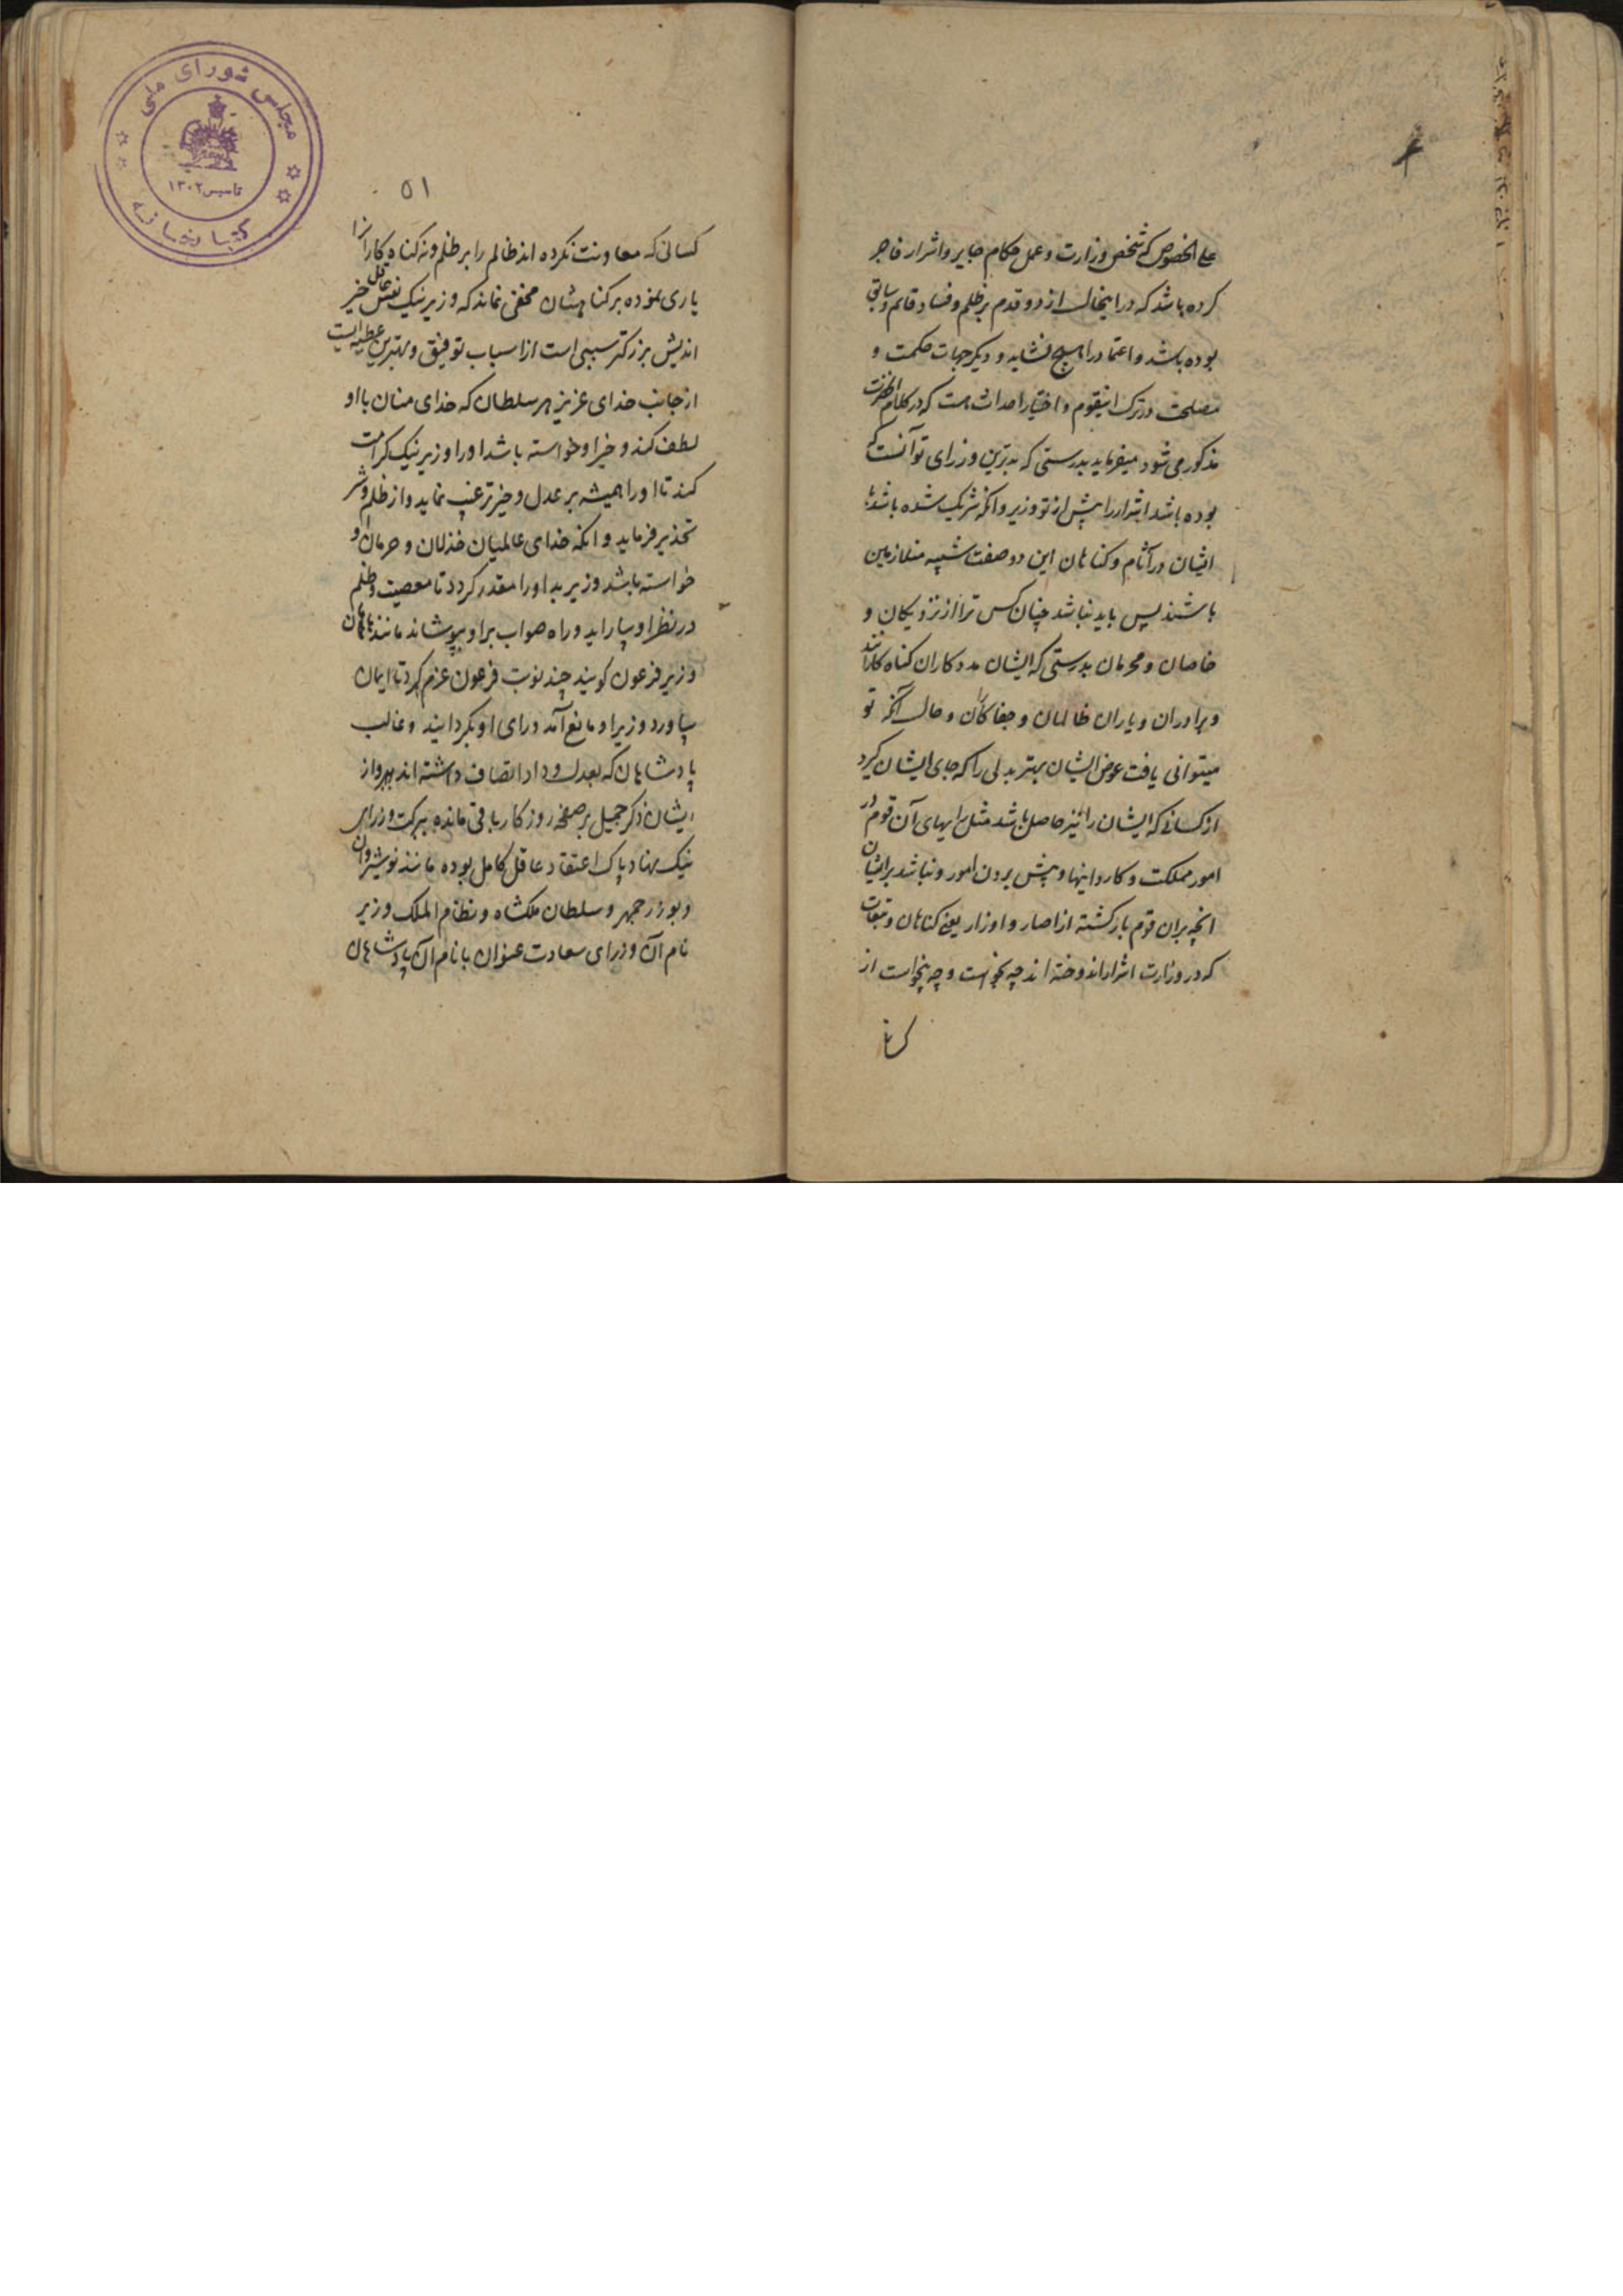 علی الخصوص که شخص وزارت و عمل حکام جایر و اشرار فاجر
کرده باشد که در اینحال از دو قدم بر ظلم و فساد قایم و ساقی
بوده باشد و اعتماد را هیچ نشاید و دیگر جهات حکمت و
مصلحت در ترک اینقوم و اختیار احداث هست که در کلام انحضرت
مذکور می شود میفرماید بدرستی که بدترین وزرای تو آنست که
بوده باشد اشرار را پیش از تو وزیر و انکه شریک شده باشد با
ایشان در آثام و کناهان این دو صفت شبیه متلازمین
باشند پس باید نباشد چنان کس ترا از نزدیکان و
خاصان و محرمان بدرستی که ایشان مددکاران کناه کارانند
و برادران و یاران ظالمان و جفاکاران و حال آنکه تو
میتوانی یافت عوض ایشان بهتر بدلی را که جای ایشان کیرد
از کسانی که ایشان را نیز حاصل باشد مثل رایهای آن قوم در
امور مملکت و کاردانیها و پیش بردن امور و نباشد بر ایشان
انچه بران قوم بازکشته از اصار و اوزار یعنی کناهان و تبعات
که در وزارت اشرار اندوخته اند چه بخواست و چه بنخواست از
کسانی
۵۱
کسانی که معاونت نکرده اند ظالم را بر ظلم و نه کناه کارانرا
یاری نموده بر کناهشان مخفی نماند که وزیر نیک نفس عاقل خیر
اندیش بزرکتر سببی است از اسباب توفیق و بهترین عطیه ایست
از جانب خدای عزیز هر سلطان که خدای منان با او
لطف کند و خیر او خواسته باشد او را وزیر نیک کرامت
کند تا او را همیشه بر عدل و خیر ترغیب نماید و از ظلم و شر
تحذیر فرماید و انکه خدای عالمیان خذلان و حرمان او
خواسته باشد وزیر بد او را مقدر کردد تا معصیت و ظلم
در نظر او بیاراید و راه صواب بر او بپوشاند مانند هامان
وزیر فرعون کویند چند نوبت فرعون عزم کرد تا ایمان
بیاورد وزیر او مانع آمد و رای او بکردانید و غالب
پادشاهان که بعدل و داد اتصاف داشته اند و از
ایشان ذکر جمیل بر صفحه روزکار باقی مانده ببرکت وزرای
نیک نهاد پاک اعتقاد عاقل کامل بوده مانند نوشیروان
و بوزرجمهر و سلطان ملکشاه و نظام الملک وزیر
نام آن وزرای سعادت عنوان با نام آن پادشاهان
مجلس شورای ملی
تاسیس ۱۳۰۲
کتابخانه